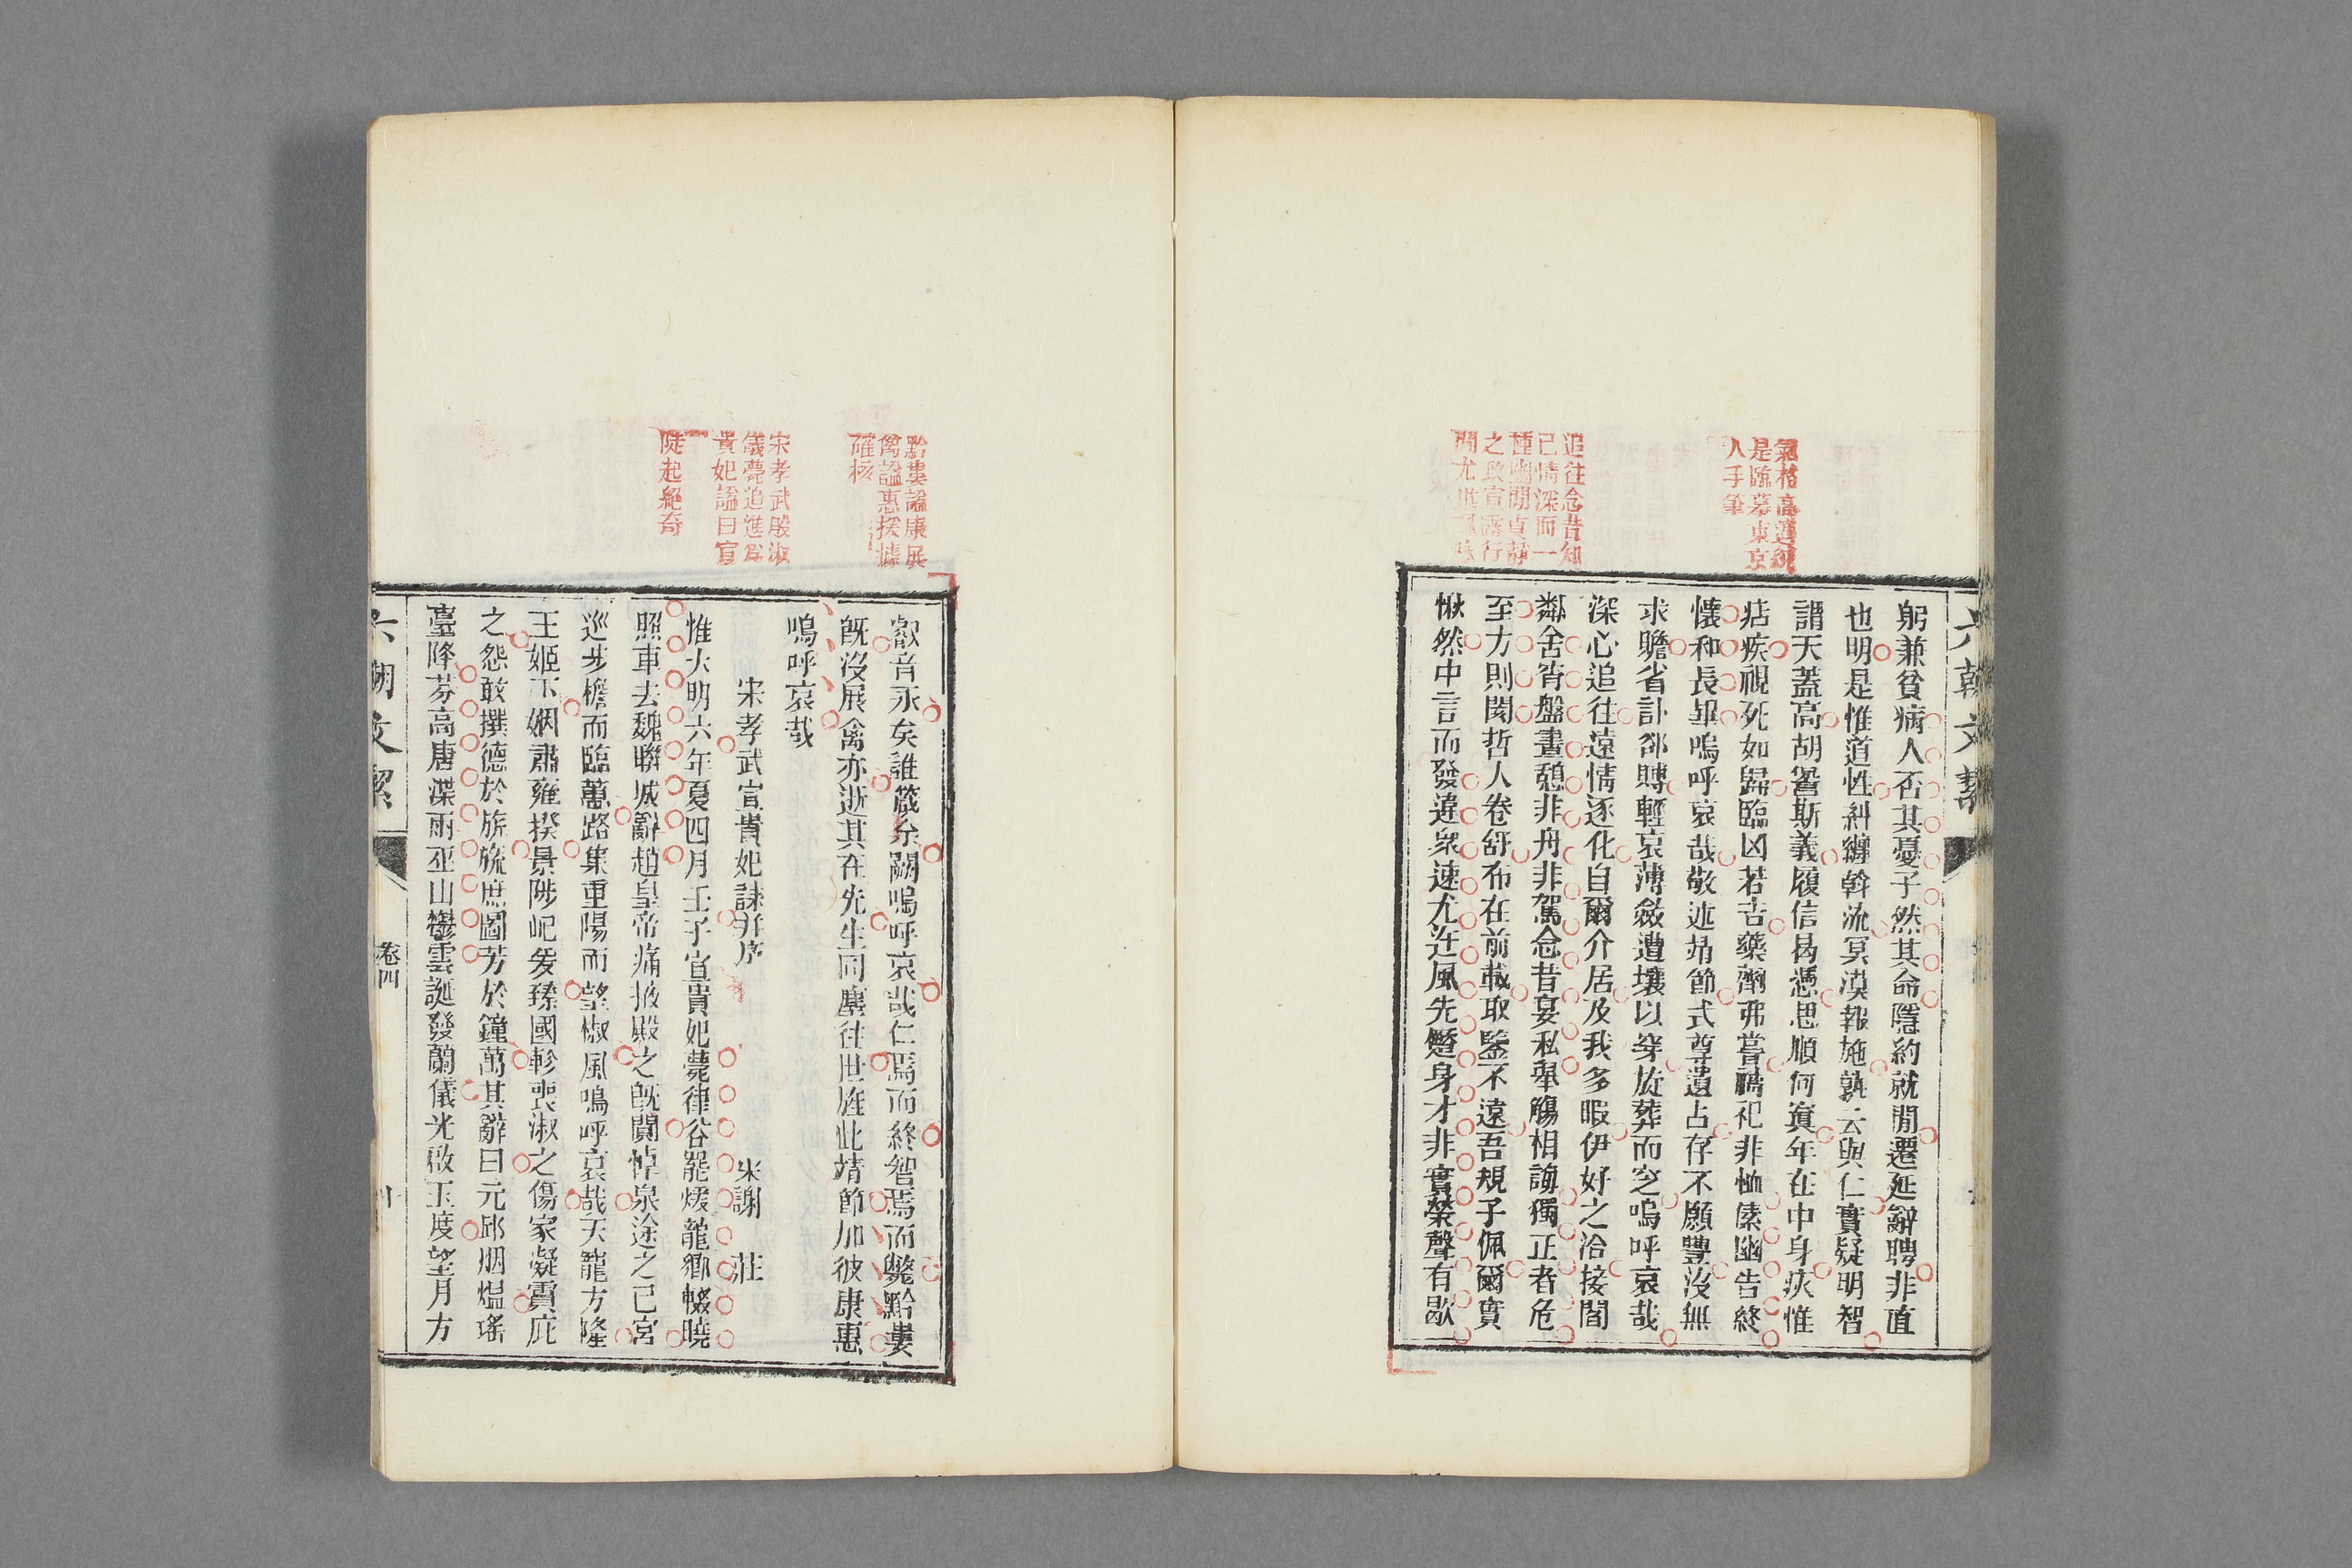 氣格高邁純
是臨摹東京
人手筆
追往念昔知
已情深而一
種幽閒貞靜
之致宣露行
間尤堪諷咏
躬兼貧病人否其憂子然其命隱約就閒遷延辭聘非直
也明是惟道性糾纆斡流冥漠報施孰云與仁實疑明智
謂天蓋高胡諐斯義履信曷憑思順何寘年在中身疢惟
痁疾視死如歸臨凶若吉藥劑弗嘗禱祀非恤傃幽告終
懷和長畢嗚呼哀哉敬述靖節式尊遺占存不願豐沒無
求贍省訃卻賻輕哀薄斂遭壤以穿旋葬而窆嗚呼哀哉
深心追往遠情逐化自爾介居及我多暇伊好之洽接閻
鄰舍宵盤晝憩非舟非駕念昔宴私舉觴相誨獨正者危
至方則閡哲人卷舒布在前載取鑒不遠吾規子佩爾實
愀然中言而發違衆速尤迕風先蹷身才非實榮聲有歇
六朝文絜
黔婁諡康展
禽諡惠援據
確核
宋孝武殷淑
儀薨追進爲
貴妃諡曰宣
陡起絕奇
叡音永矣誰箴余闕嗚呼哀哉仁焉而終智焉而斃黔婁
旣沒展禽亦逝其在先生同塵往世旌此靖節加彼康惠
嗚呼哀哉
宋孝武宣貴妃誄并序　宋謝　莊
惟大明六年夏四月壬子宣貴妃薨律谷罷煖龍鄉輟曉
照車去魏聯城辭趙皇帝痛掖殿之旣闃悼泉途之已宮
巡步檐而臨蕙路集重陽而望椒風嗚呼哀哉天寵方隆
王姬下姻肅雍揆景陟屺爰臻國軫喪淑之傷家凝霣庇
之怨敢撰德於旂旒庶圖芳於鐘萬其辭曰元邱烟熅瑤
臺降芬高唐渫雨巫山鬱雲誕發蘭儀光啟玉度望月方
六朝文絜
卷四